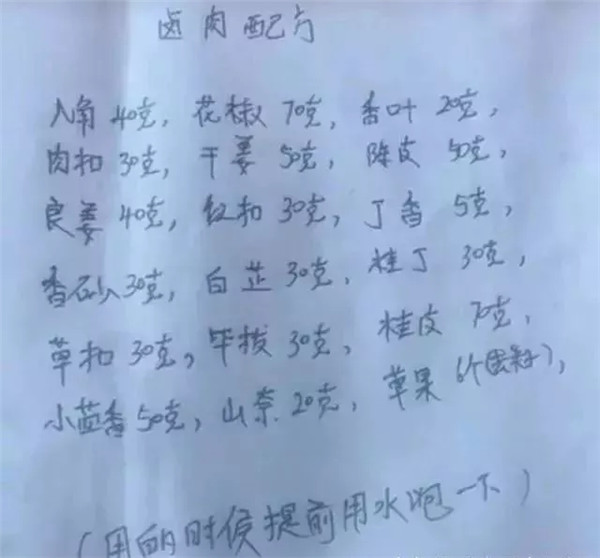 卤肉配方
八角40克，花椒70克，香叶20克，
肉扣30克，干姜50克，陈皮50克，
良姜40克，红扣30克，丁香5克，
香砂30克，白芷30克，桂丁30克，
草扣30克，毕拨30克，桂皮70克，
小茴香50克，山奈20克，草果6个(去籽)，
(用的时候提前用水泡一下)